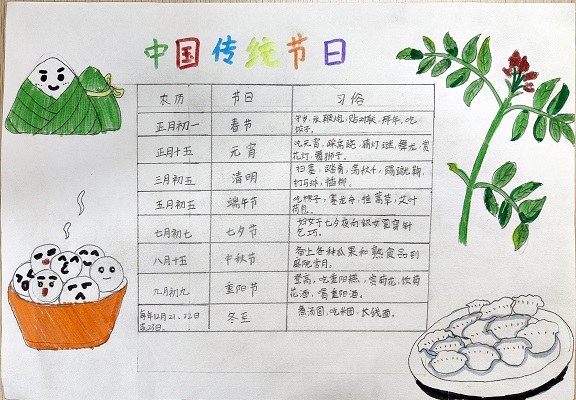 中国传统节日
农历 节日 习俗
正月初一 春节 放鞭炮,贴对联,拜年,吃
饺子。
正月十五 元宵 吃元宵,踩高跷,猜灯谜,舞龙,赏
花灯,舞狮子。
三月初五 清明 扫墓,踏青,荡秋千,蹴鞠,
打马球,插柳。
五月初五 端午节 吃粽子,赛龙舟,挂菖蒲,艾叶
荷包。
七月初七 七夕节 妇女于七夕夜向织女星穿针
乞巧。
八月十五 中秋节 备上各种瓜果和熟食品到
庭院赏月。
九月初九 重阳节 登高,吃重阳糕,赏菊花,饮菊
花酒,喝重阳酒。
每年12月21,22日 冬至 煮汤圆,吃米团,长线面。
或23日。